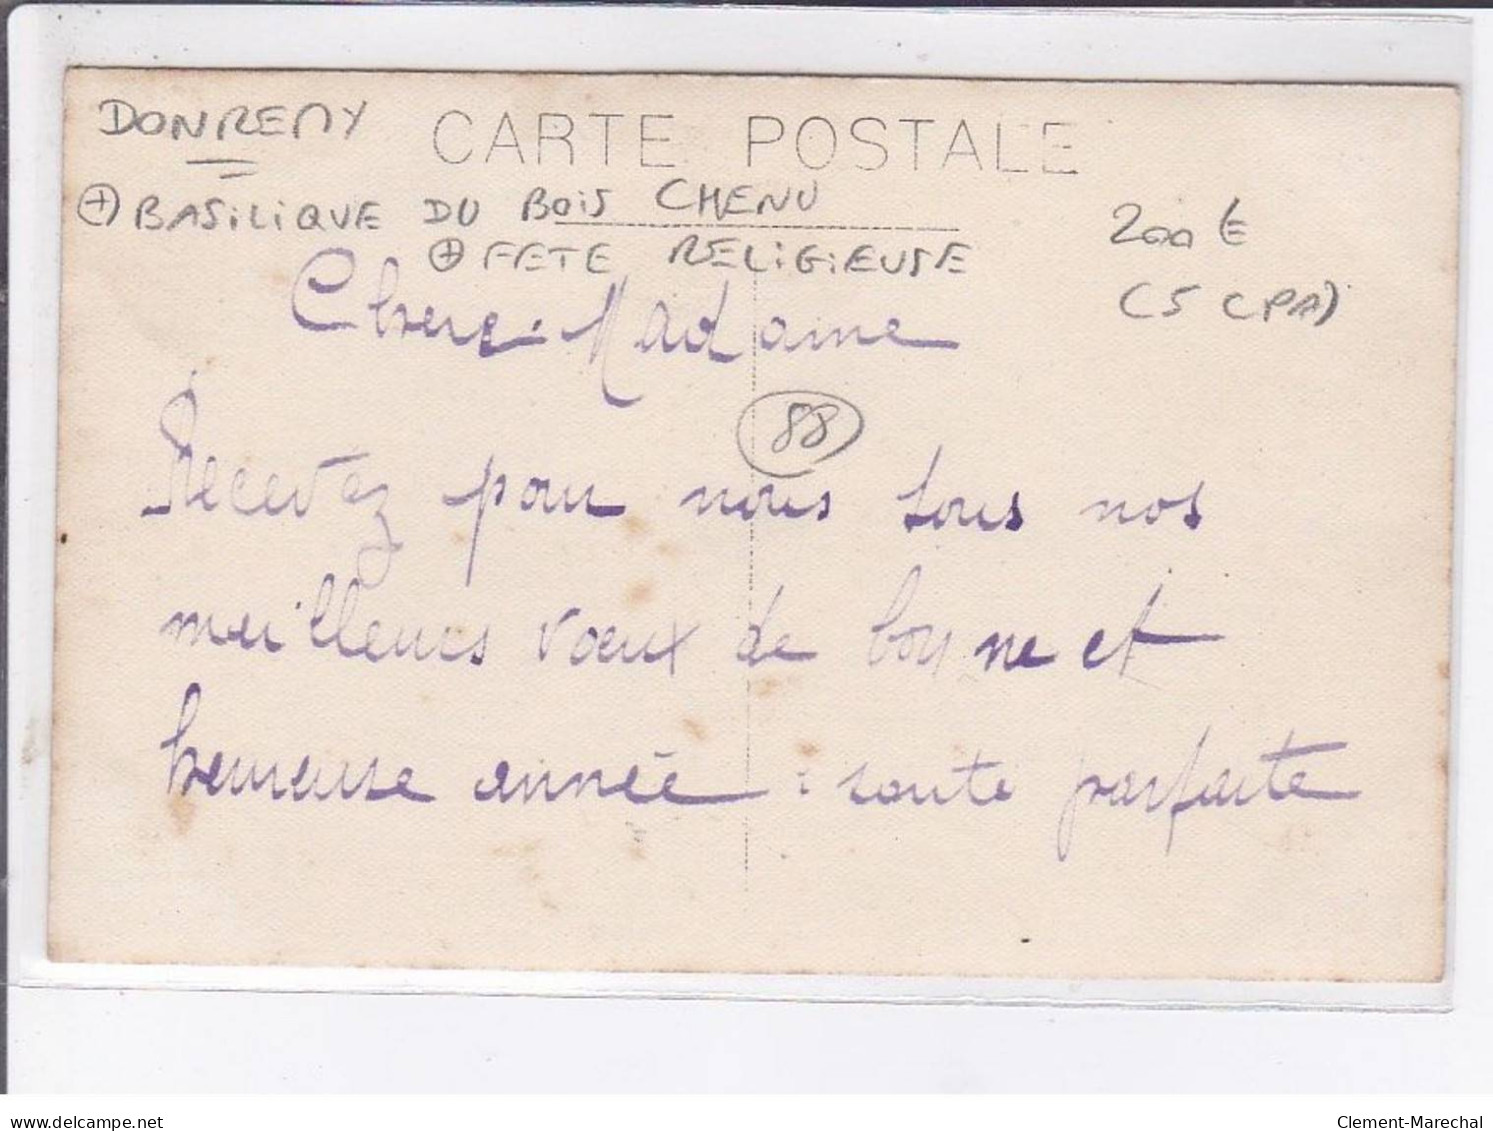 DONREMY
CARTE POSTALE
+ BASILIQUE DU BOIS CHENU
+ FETE RELIGIEUSE
200 €
(5 CPA)
Chere Madame
88
Recevez pour nous tous nos
meilleurs vœux de bonne et
heureuse année : sante parfaite
delcampe.net
Clement-Marechal